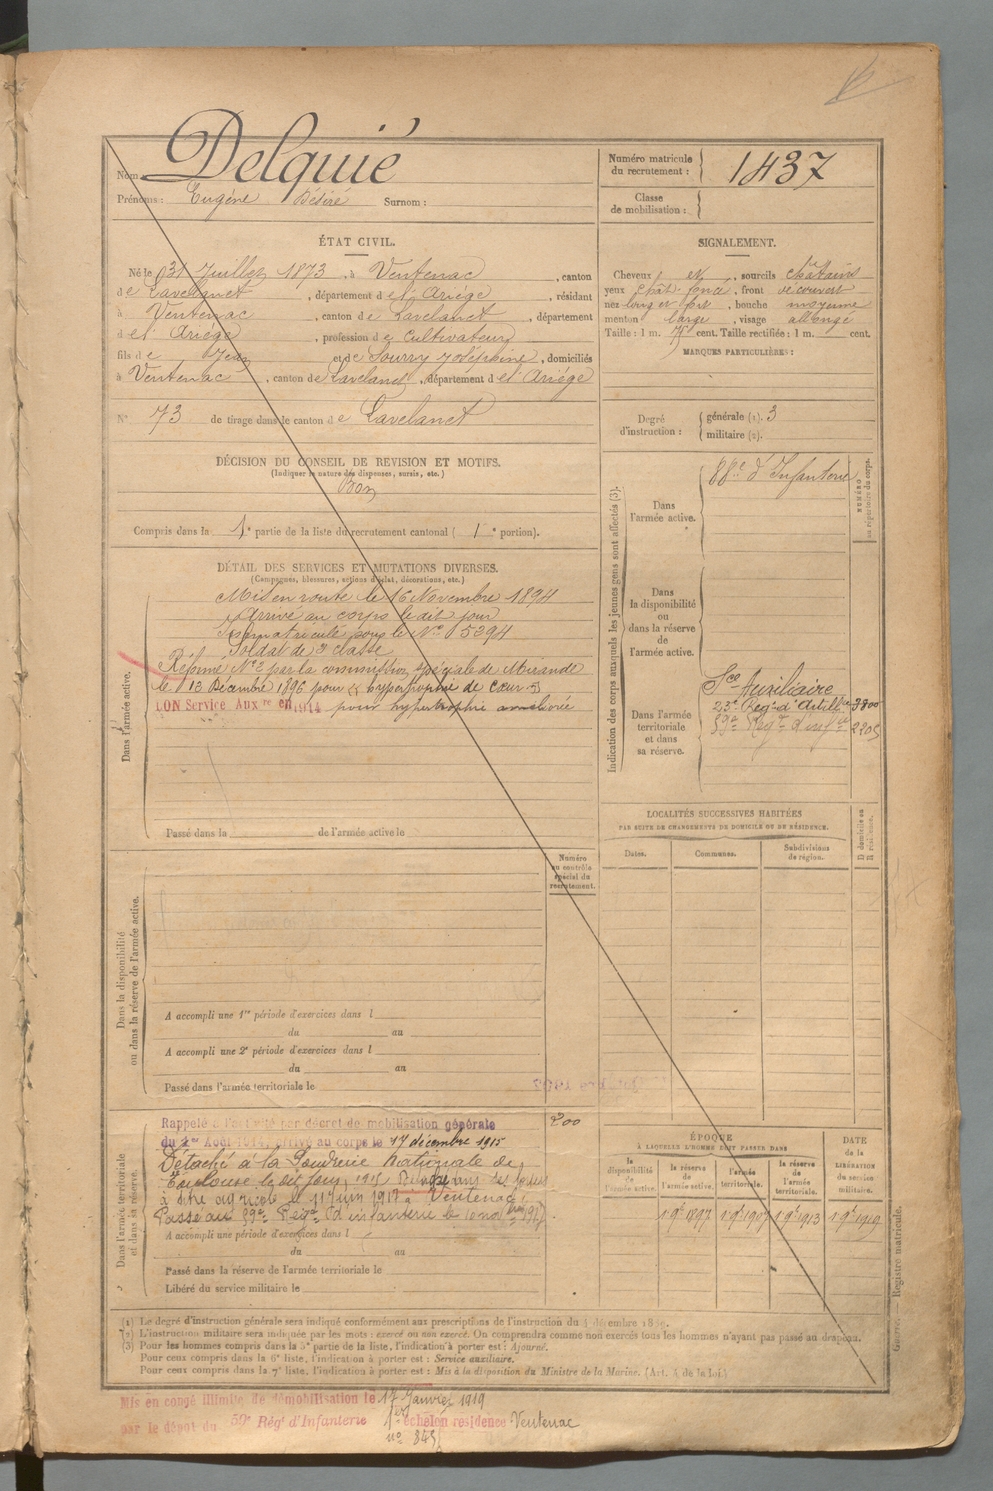 Nom : Delquié
Prénoms : Eugène Désiré Surnom :
Numéro matricule du recrutement : 1437
Classe de mobilisation :
ÉTAT CIVIL.
Né le 31 Juillet 1873, à Ventenac, canton
de Lavelanet, département de l'Ariège, résidant
à Ventenac, canton de Lavelanet, département
de l'Ariège, profession de Cultivateur
fils de Jean et de Sourry Joséphine, domiciliés
à Ventenac, canton de Lavelanet, département de l'Ariège
N° 73 de tirage dans le canton de Lavelanet
SIGNALEMENT.
Cheveux et, sourcils châtains
yeux chât. foncé, front découvert
nez long et, bouche moyenne
menton large, visage allongé
Taille : 1 m. 75 cent. Taille rectifiée : 1 m. cent.
MARQUES PARTICULIÈRES :
Degré d'instruction : générale (1). 3
militaire (2).
DÉCISION DU CONSEIL DE REVISION ET MOTIFS.
(Indiquer la nature des dispenses, sursis, etc.)
Bon
Compris dans la 1e partie de la liste du recrutement cantonal ( 1e portion).
DÉTAIL DES SERVICES ET MUTATIONS DIVERSES.
(Campagnes, blessures, actions d'éclat, décorations, etc.)
Dans l'armée active.
Mis en route le 16 Novembre 1894
Arrivé au corps le dit jour
Immatriculé sous le N° 5394
Soldat de 2e classe
Réformé N°2 par la commission spéciale de Mirande
le 13 Décembre 1896 pour « hypertrophie de cœur »
Service Auxre en 1914 pour hypertrophie améliorée
Passé dans la de l'armée active le
Indication des corps auxquels les jeunes gens sont affectés (3).
NUMÉRO au répertoire du corps.
Dans l'armée active.
88e d'Infanterie
Dans la disponibilité ou dans la réserve de l'armée active.
Dans l'armée territoriale et dans sa réserve.
Sce Auxiliaire
23e Régt d'Artillie 3800
59e Régt d'infie 2205
LOCALITÉS SUCCESSIVES HABITÉES
PAR SUITE DE CHANGEMENTS DE DOMICILE OU DE RÉSIDENCE.
Dates. Communes. Subdivisions de région. D domicile ou R résidence.
Numéro au contrôle spécial du recrutement.
Dans la disponibilité ou dans la réserve de l'armée active.
A accompli une 1re période d'exercices dans l
du au
A accompli une 2e période d'exercices dans l
du au
Passé dans l'armée territoriale le
Dans l'armée territoriale et dans sa réserve.
Rappelé à l'activité par décret de mobilisation générale 200
du 1er Août 1914, arrivé au corps le 17 décembre 1915
Détaché à la Poudrerie Nationale de
Toulouse le dit jour 1915
à titre agricole le 11 Juin 1917 à Ventenac
Passé au 59e Régt d'infanterie le 10 1917
A accompli une période d'exercices dans l
du au
Passé dans la réserve de l'armée territoriale le
Libéré du service militaire le
ÉPOQUE
A LAQUELLE L'HOMME DOIT PASSER DANS
la disponibilité de l'armée active. la réserve de l'armée active. l'armée territoriale. la réserve de l'armée territoriale.
DATE de la LIBÉRATION du service militaire.
1 9e 1897 1 9e 1907 1 9e 1913 1 9e 1919
(1) Le degré d'instruction générale sera indiqué conformément aux prescriptions de l'instruction du décembre
(2) L'instruction militaire sera indiquée par les mots : exercé ou non exercé. On comprendra comme non exercés tous les hommes n'ayant pas passé au drapeau.
(3) Pour les hommes compris dans la 5e partie de la liste, l'indication à porter est : Ajourné.
Pour ceux compris dans la 6e liste, l'indication à porter est : Service auxiliaire.
Pour ceux compris dans la 7e liste, l'indication à porter est : Mis à la disposition du Ministre de la Marine. (Art. 4 de la Loi.)
Guerre. — Registre matricule.
Mis en congé illimité de démobilisation le 17 Janvier 1919
par le dépôt du 59e Régt d'Infanterie 1er échelon résidence Ventenac
n°